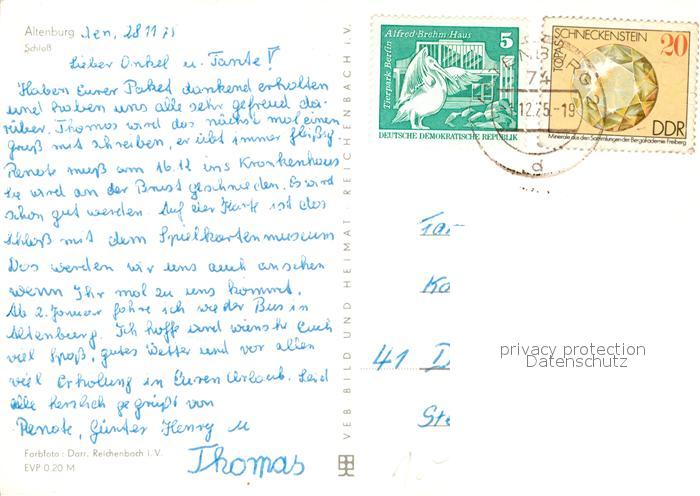 Altenburg den, 28 11 75
Schloß
Lieber Onkel u. Tante!
Haben Eurer Paket dankend erhalten
und haben uns alle sehr gefreud da-
rüber. Thomas wird das nächste mal einen
gruß mit schreiben, er übt immer fleißig.
Renate muß am 16.12 ins Krankenhaus
Sie wird an der Brust geschnieden. Es wird
schon gut werden. Auf der Karte ist das
Schloß mit dem Spielkartenmuseum
Das werden wir uns auch ansehen
wenn Ihr mal zu uns kommt.
Ab 2. Januar fahre ich wieder Bus in
Altenburg. Ich hoffe und wünsche Euch
viel Spaß, gutes Wetter und vor allen
viel Erholung in Euren Urlaub. Seid
alle herzlich gegrüßt von
Renate, Günter Henry u
Thomas
Farbfoto: Darr, Reichenbach i. V.
EVP 0.20 M
VEB BILD UND HEIMAT REICHENBACH i. V.
Alfred-Brehm-Haus
5
Tierpark Berlin
DEUTSCHE DEMOKRATISCHE REPUBLIK
SCHNECKENSTEIN
TOPAS
20
DDR
Minerale aus den Sammlungen der Bergakademie Freiberg
74
12.75.-19
d
41 D
privacy protection
Datenschutz